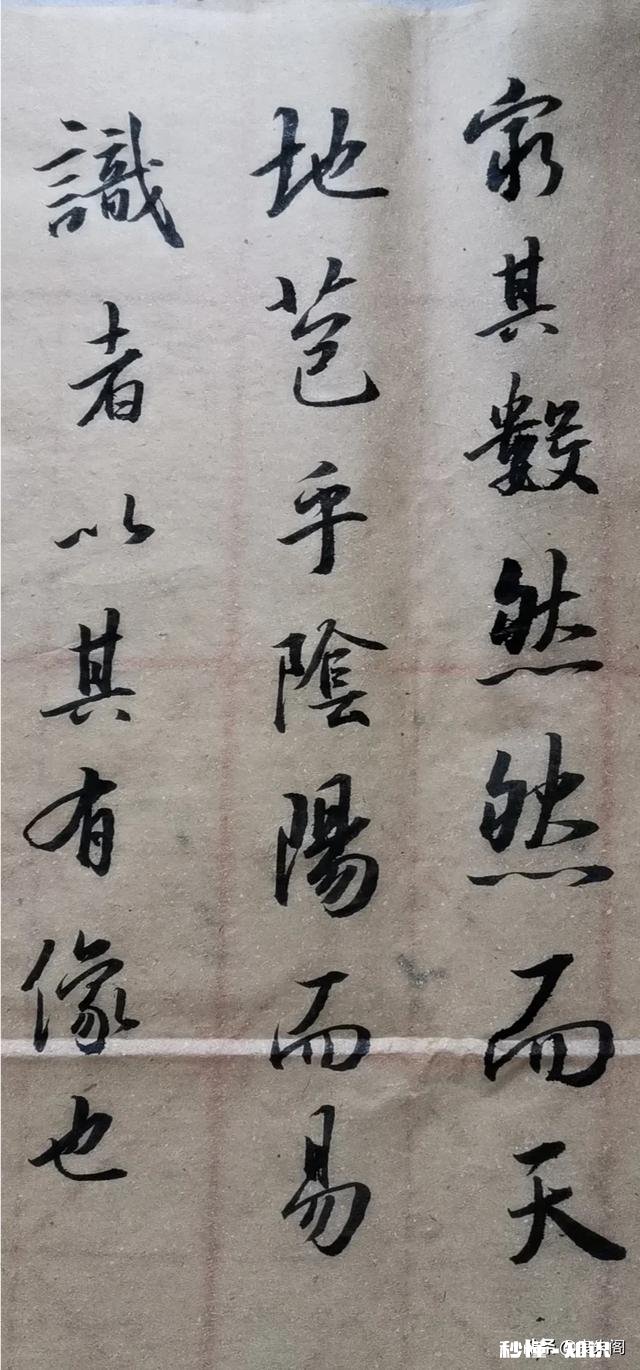 窮其數然然而天
地苞乎陰陽而易
識者以其有像也
秒懂·知识